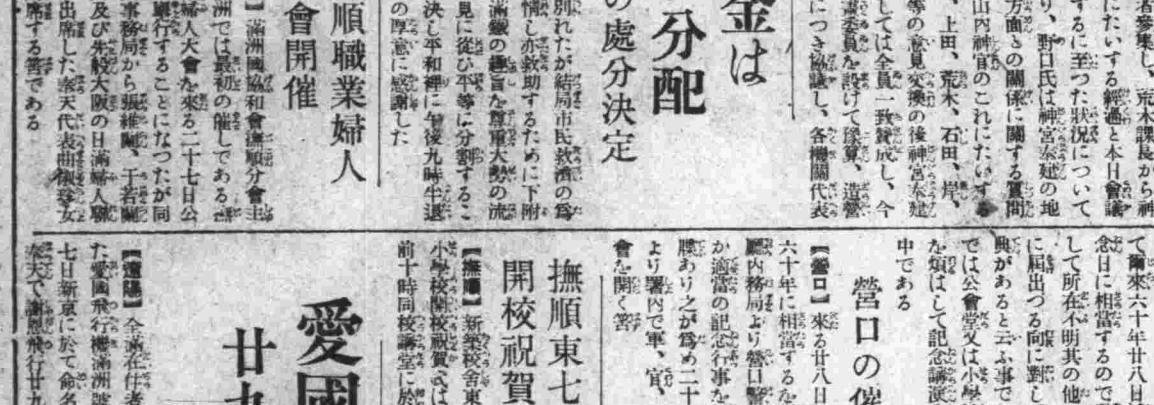 者參集し、荒木課長から神
にたいする經過と本日會議
するに至つた狀況について
り、野口氏は神宮奉遷の地
方面との關係に關する質問
山内神官のこれにたいする
、上田、荒木、石田、岸、
等の意見交換の後神宮奉遷
しては全員一致贊成し、今
委員を設けて豫算、造營
につき協議し、各機關代表
金は
分配
の處分決定
別れたが結局市民救濟の爲
情し亦救助するために下附
滿鐵の趣旨を尊重大勢の流
見に從ひ平等に分割するこ
決し平和裡に午後九時半退
の厚意に感謝した
順職業婦人
會開催
】滿洲國協和會撫順分會主
洲では最初の催しである
婦人大會を來る二十七日公
擧行することになつたが同
事務局から張維蘭、于若蘭
及び先般大阪の日滿婦人聯
出席した奉天代表曲
席する筈である
て爾來六十年廿八日
念日に相當するので
して所在不明其の他
に屆出づる向に對し
典があると云ふ事で
では公會堂又は小學
を煩はして記念講演
中である
營口の催
【營口】來る廿八日
六十年に相當するを
廳内務局より營口警
か適當の記念行事を
牒あり之が爲め二十
より署内で軍、官、
會を開く筈
撫順東七
開校祝賀
【撫順】新築校舍東
小學校開校祝賀式は
前十時同校講堂に於
愛國
廿九
【遼陽】全滿在住者
た愛國飛行機滿洲號
七日新京に於て命名
奉天で謝恩飛行廿九